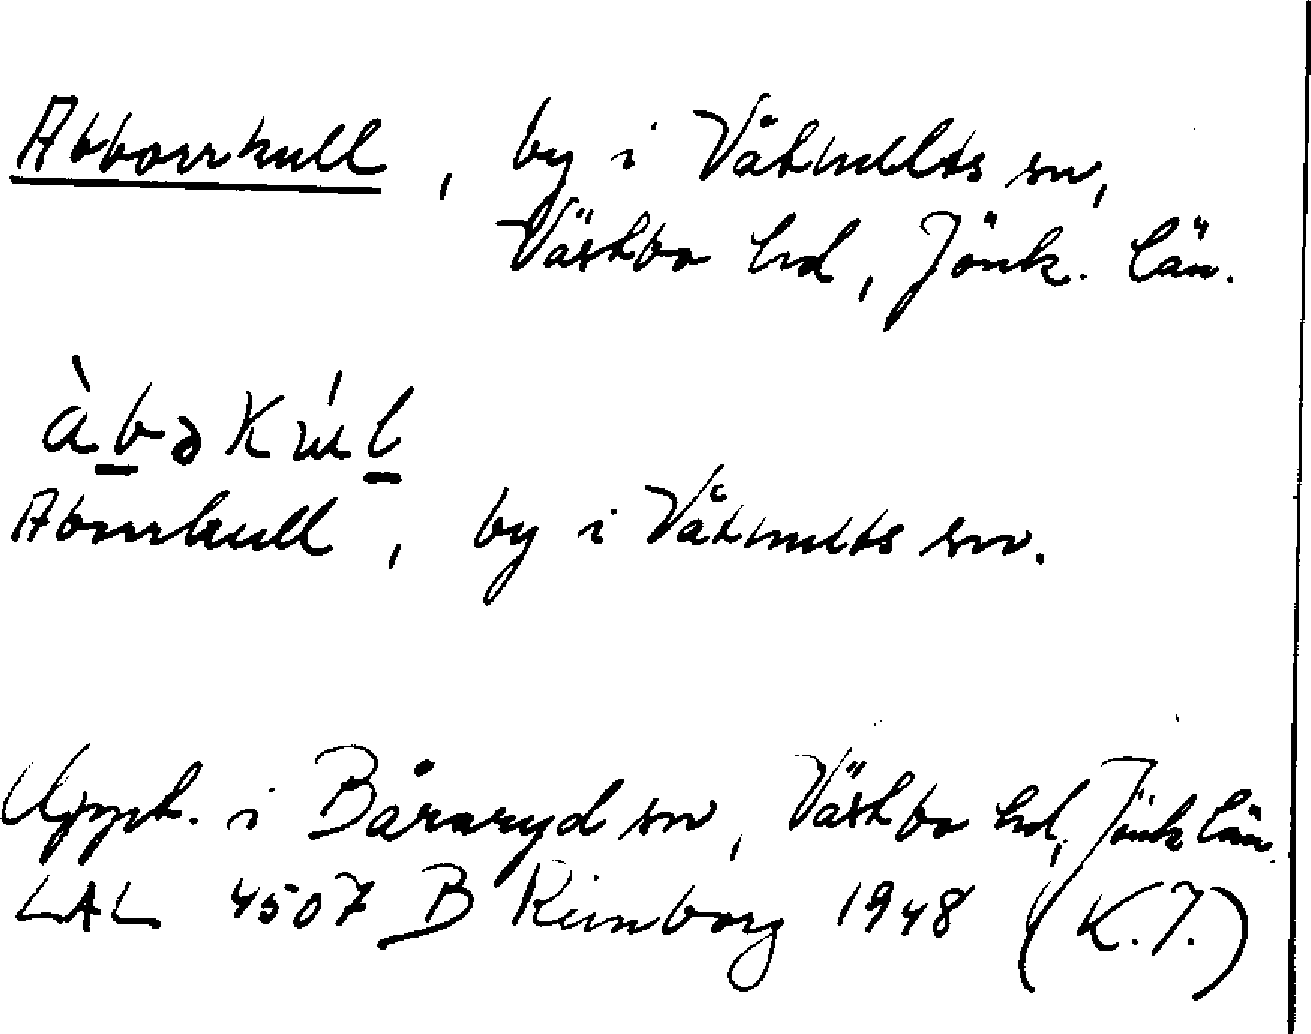 Abborrkull, by i Våthults sn,
Västbo hd, Jönk. län.
àbəkúl
Aborrkull, by i Våthults sn.
Uppt. i Båraryd sn, Västbo hd, Jönk län.
LAL 4507 B Reinborg 1948 (K.J.)